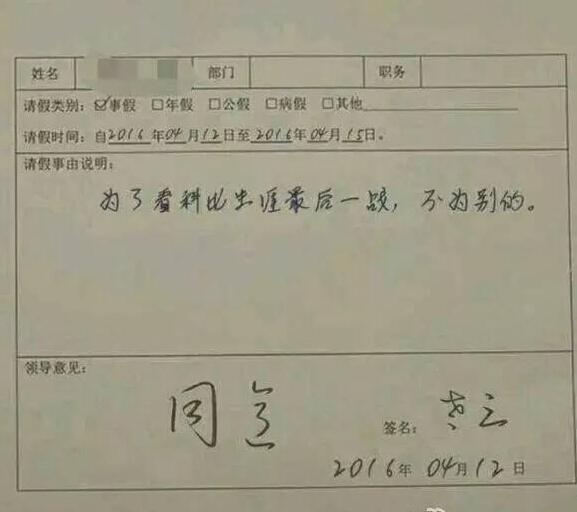 姓名 部门 职务
请假类别：☑事假 □年假 □公假 □病假 □其他
请假时间：自2016年04月12日至2016年04月15日。
请假事由说明：
为了看科比生涯最后一战，不为别的。
领导意见：
同意
签名：
2016年04月12日